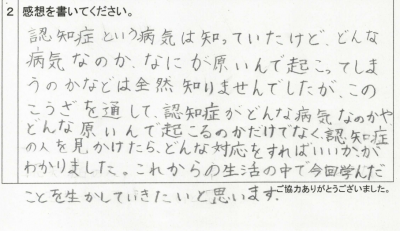 2 感想を書いてください。
認知症という病気は知っていたけど、どんな
病気なのか、なにが原いんで起こってしま
うのかなどは全然知りませんでしたが、この
こうざを通して、認知症がどんな病気なのかや
どんな原いんで起こるのかだけでなく、認知症
の人を見かけたら、どんな対応をすればいいか、が
わかりました。これからの生活の中で今回学んだ
ことを生かしていきたいと思います。
ご協力ありがとうございました。